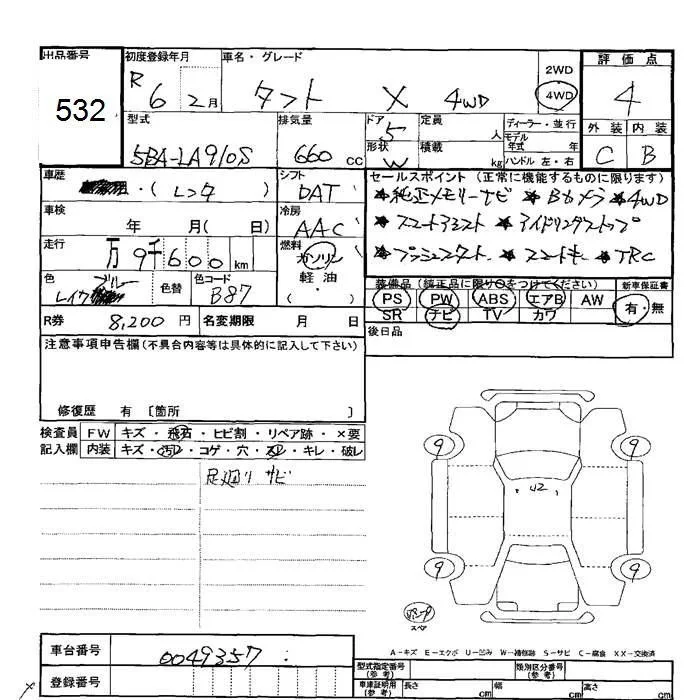 出品番号 初度登録年月 車名・グレード
2WD
4WD
評価点
532
R 6 2月 タント X 4WD
4
型式 排気量 ドア 定員 ディーラー・並行
モデル
年式 年
外装 内装
5BA-LA910S 660 cc
5 人
形状 積載
W kg ハンドル 左・右
C B
車歴 ・(レンタ)
シフト DAT
セールスポイント (正常に機能するものに限ります)
★純正メモリーナビ ★Bカメラ ★4WD
★スマートアシスト ★アイドリングストップ
★プッシュスタート ★スマートキー ★TRC
車検 年 月(日)
冷房 AAC
走行 万 9千600 km
燃料 ガソリン
軽油
・( )
色 ブルー 色替 色コード B87
装備品(純正品に限り○をつけてください) 新車保証書
PS PW ABS エアB AW 有・無
SR ナビ TV カワ
R券 8,200 円 名変期限 月 日
後日品
注意事項申告欄(不具合内容等は具体的に記入して下さい)
修復歴 有 〔箇所 〕
検査員 FW キズ・飛石・ヒビ割・リペア跡・×要
記入欄 内装 キズ・汚れ・コゲ・穴・・キレ・破レ
足廻り サビ
9 9
U2
9 9
スペア
A-キズ E-エクボ U-凹み W-補修跡 S-サビ C-腐食 XX-交換済
車台番号 0049357
登録番号
型式指定番号
(参考)
類別区分番号
(参考)
車庫証明用
(参考)
長さ cm 幅 cm 高さ cm